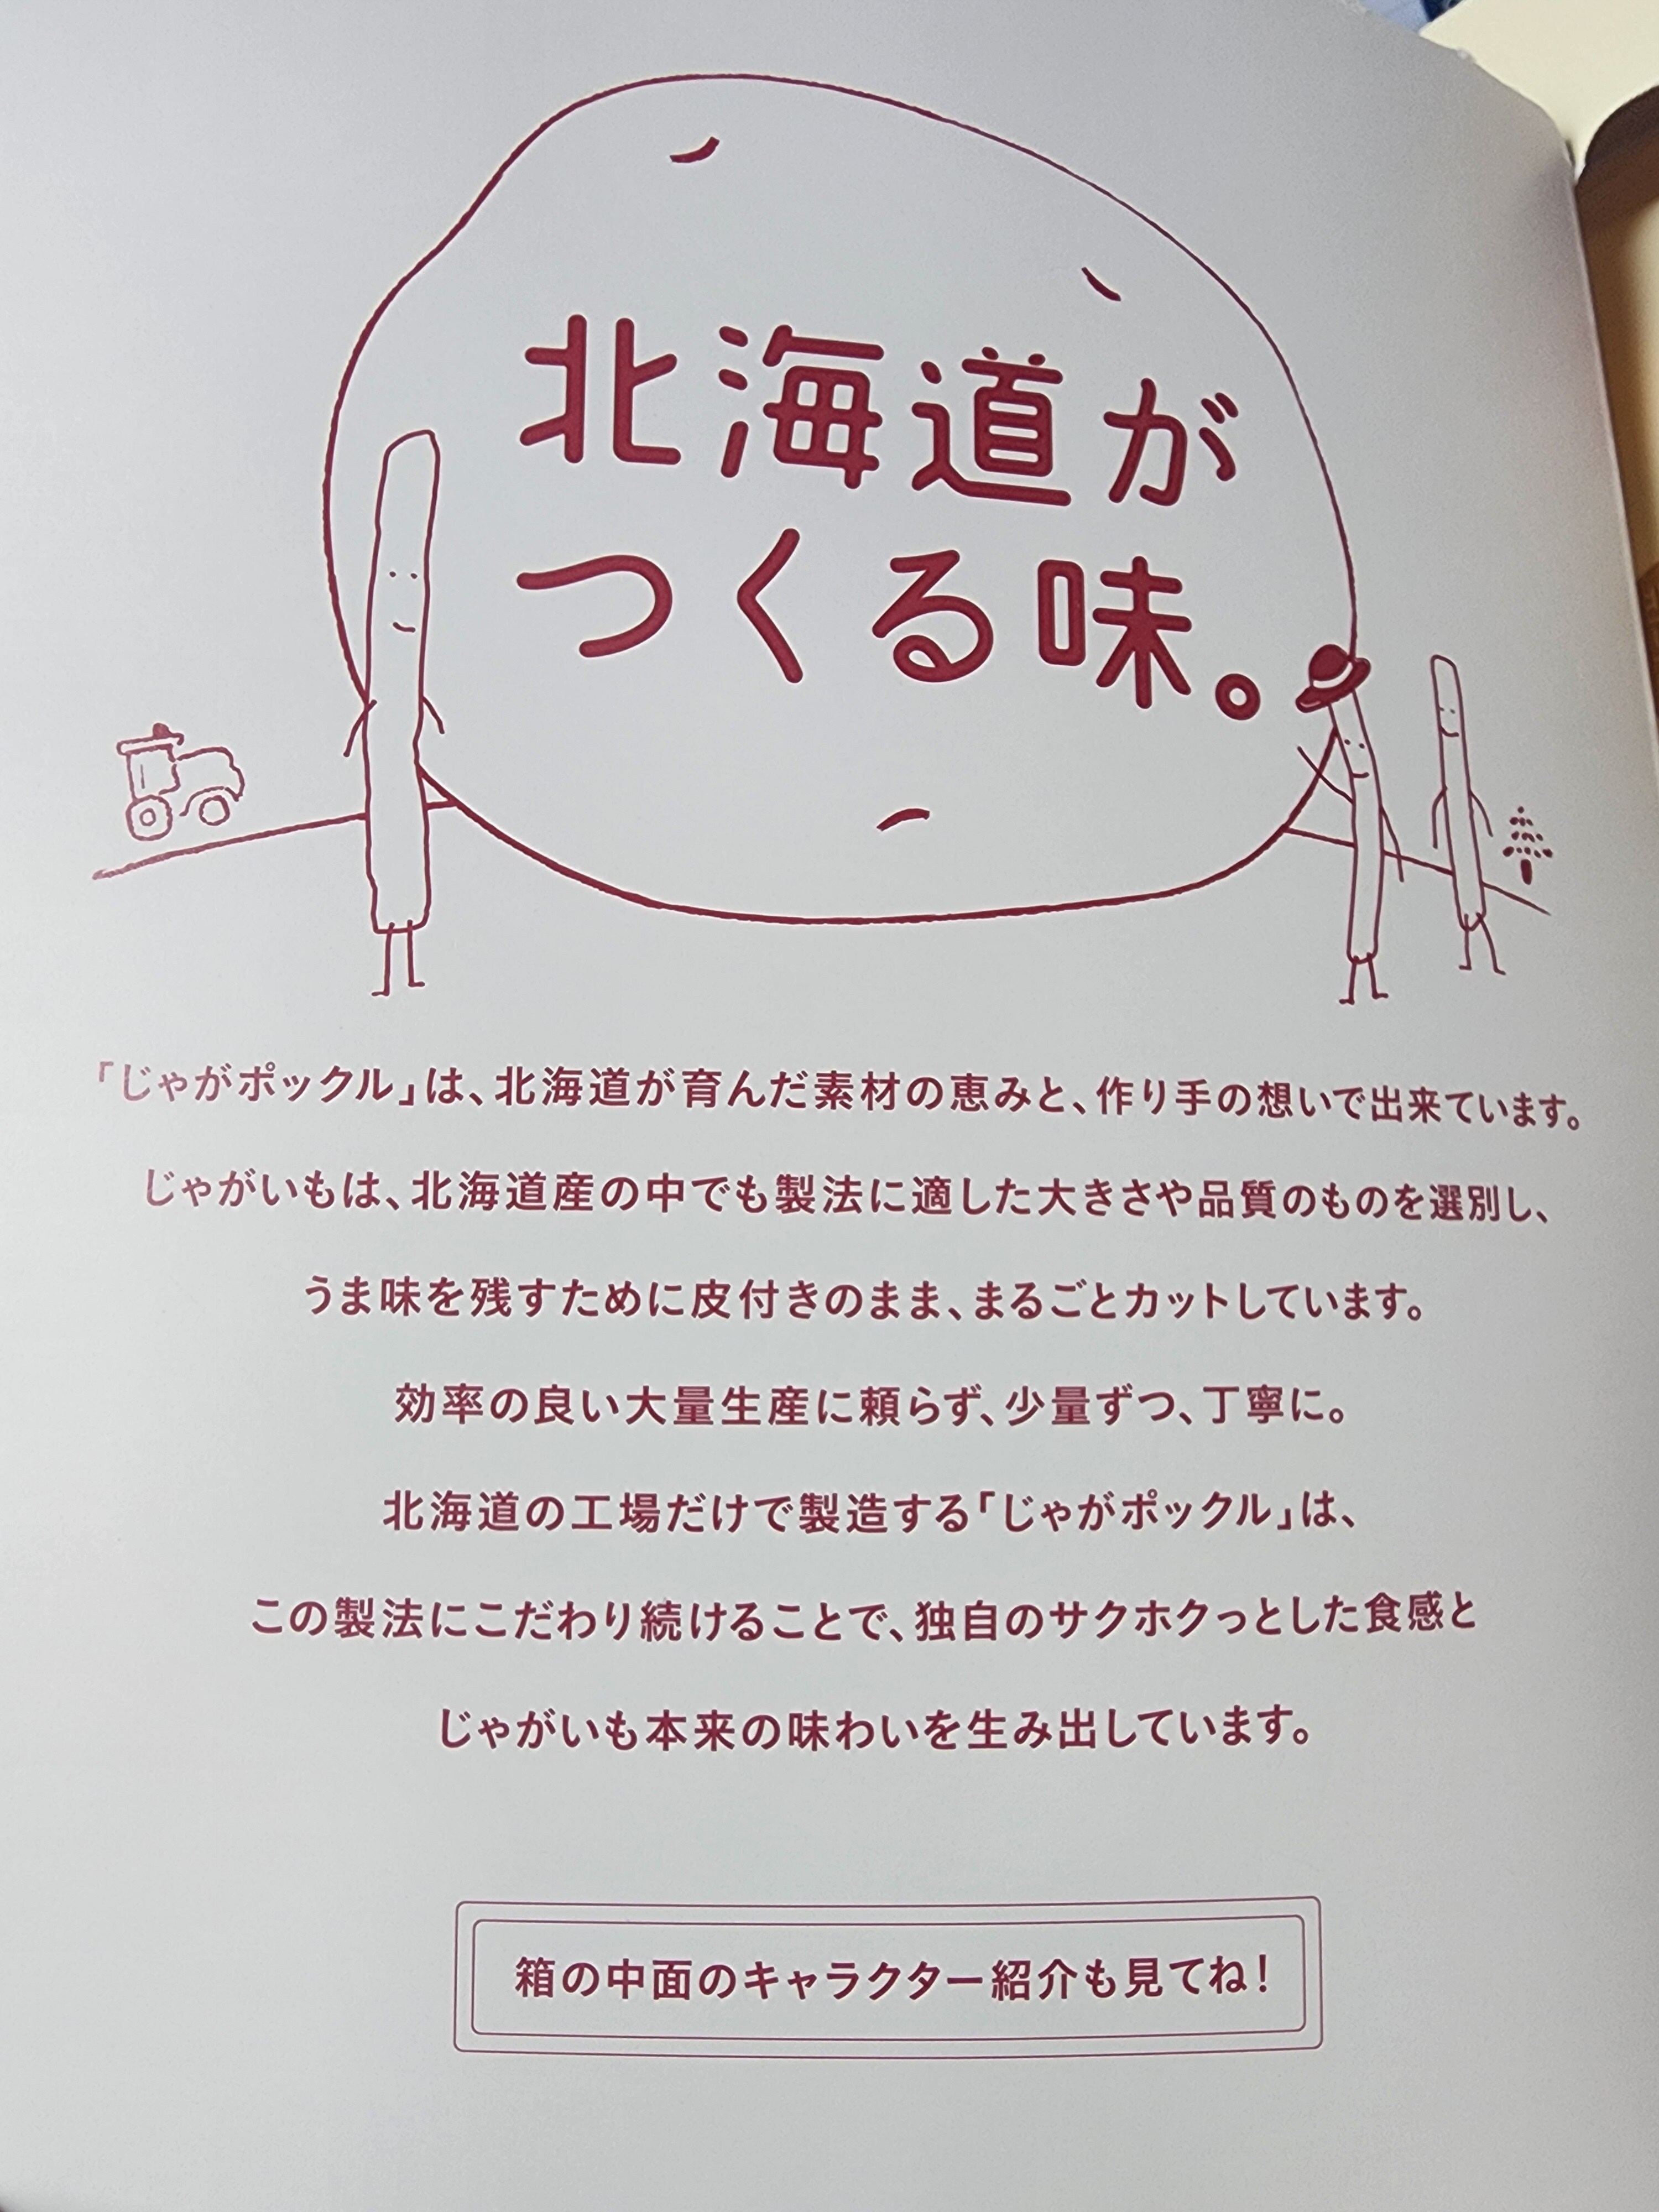 北海道が
つくる味。
「じゃがポックル」は、北海道が育んだ素材の恵みと、作り手の想いで出来ています。
じゃがいもは、北海道産の中でも製法に適した大きさや品質のものを選別し、
うま味を残すために皮付きのまま、まるごとカットしています。
効率の良い大量生産に頼らず、少量ずつ、丁寧に。
北海道の工場だけで製造する「じゃがポックル」は、
この製法にこだわり続けることで、独自のサクホクっとした食感と
じゃがいも本来の味わいを生み出しています。
箱の中面のキャラクター紹介も見てね!